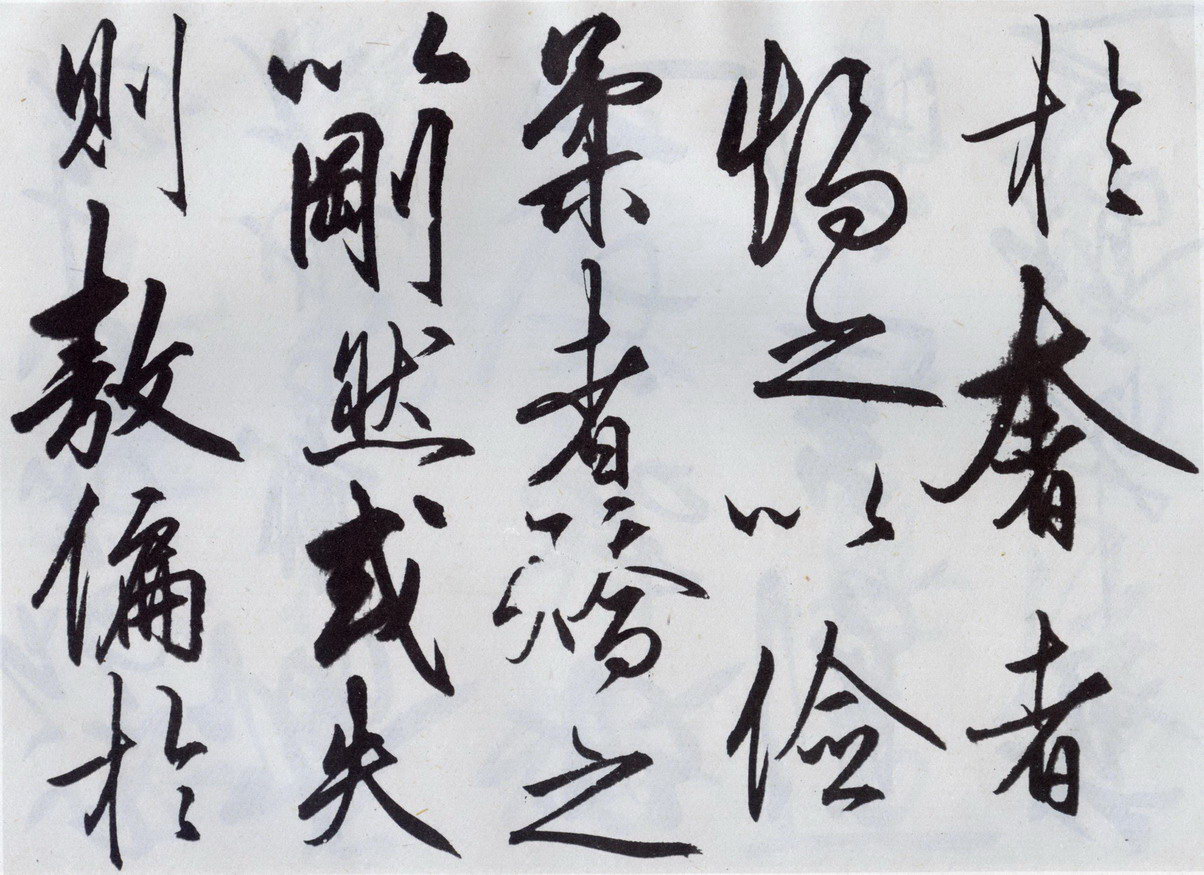 於奢者
矯之以儉
柔者矯之
以剛然或失
則敖偏於